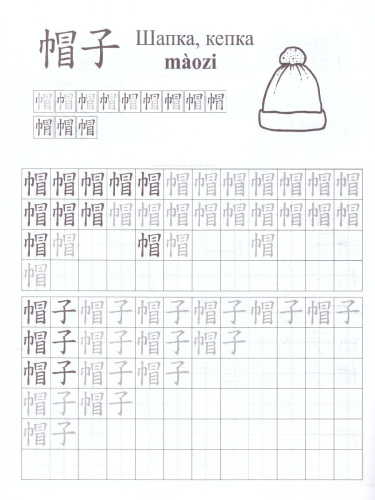 帽子 Шапка, кепка
màozi
帽帽帽帽帽帽帽帽帽
帽帽帽
帽帽帽帽帽帽帽帽帽帽帽帽
帽帽帽帽帽帽帽帽帽帽帽帽
帽帽 帽帽 帽
帽
帽子帽子帽子帽子帽子帽子
帽子帽子帽子帽子
帽子帽子帽子
帽子帽子
帽子